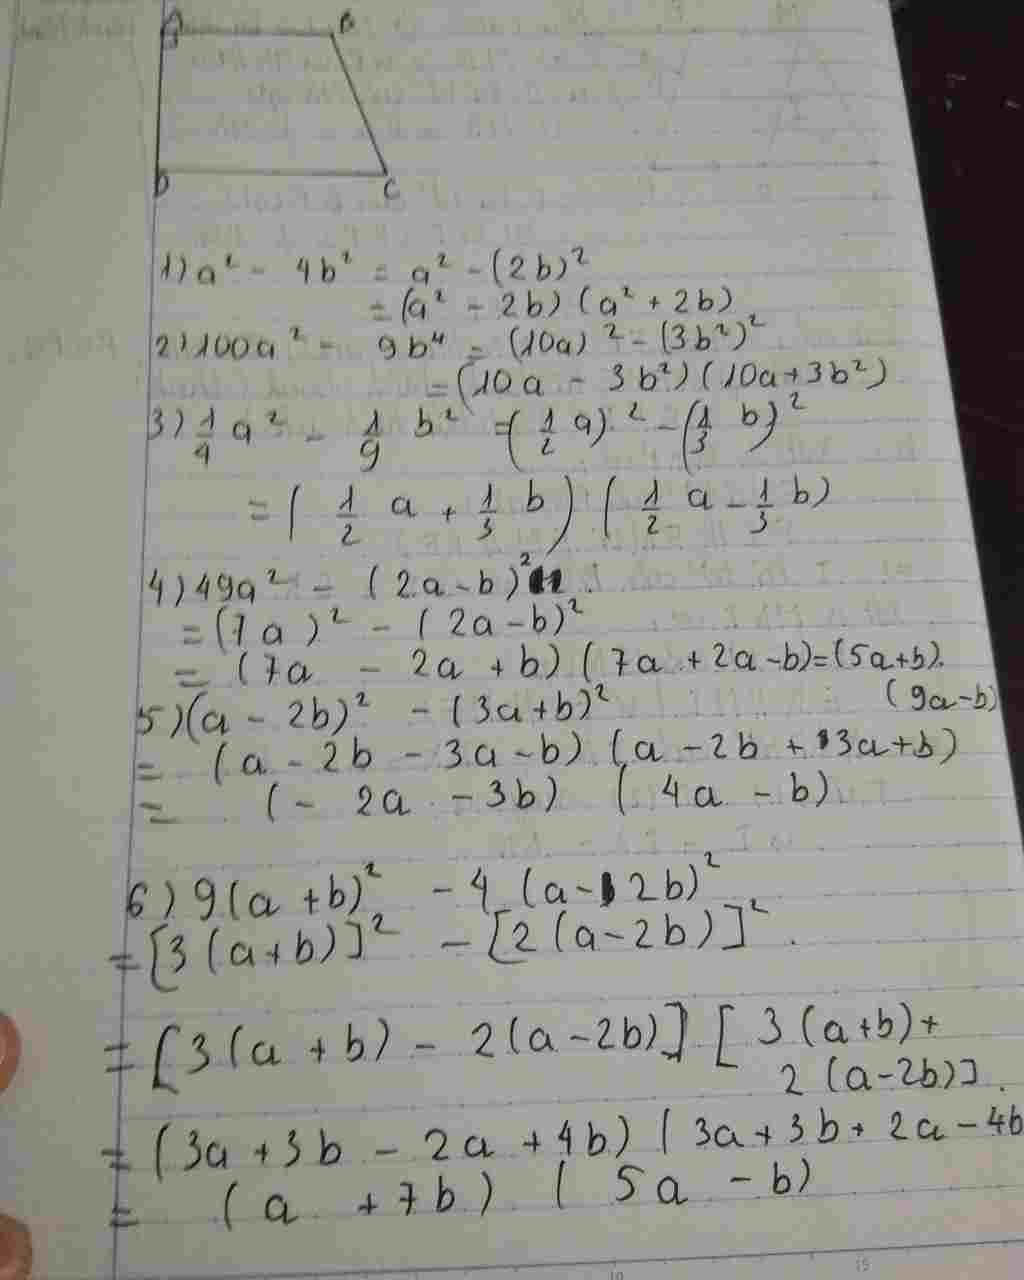 A B
D C
1) a² - 4b² = a² - (2b)²
= (a² - 2b) (a² + 2b)
2) 100a² - 9b⁴ = (10a)² - (3b²)²
= (10a - 3b²) (10a + 3b²)
3) 1/4 a² - 1/9 b² = (1/2 a)² - (1/3 b)²
= (1/2 a + 1/3 b) (1/2 a - 1/3 b)
4) 49a² - (2a - b)²
= (7a)² - (2a - b)²
= (7a - 2a + b) (7a + 2a - b) = (5a + b).
(9a - b)
5) (a - 2b)² - (3a + b)²
= (a - 2b - 3a - b) (a - 2b + 3a + b)
= (- 2a - 3b) (4a - b)
6) 9(a + b)² - 4 (a - 2b)²
= [3 (a + b)]² - [2 (a - 2b)]².
= [3(a + b) - 2(a - 2b)] [3 (a + b) +
2 (a - 2b)].
= (3a + 3b - 2a + 4b) (3a + 3b + 2a - 4b
= (a + 7b) (5a - b)
10 15